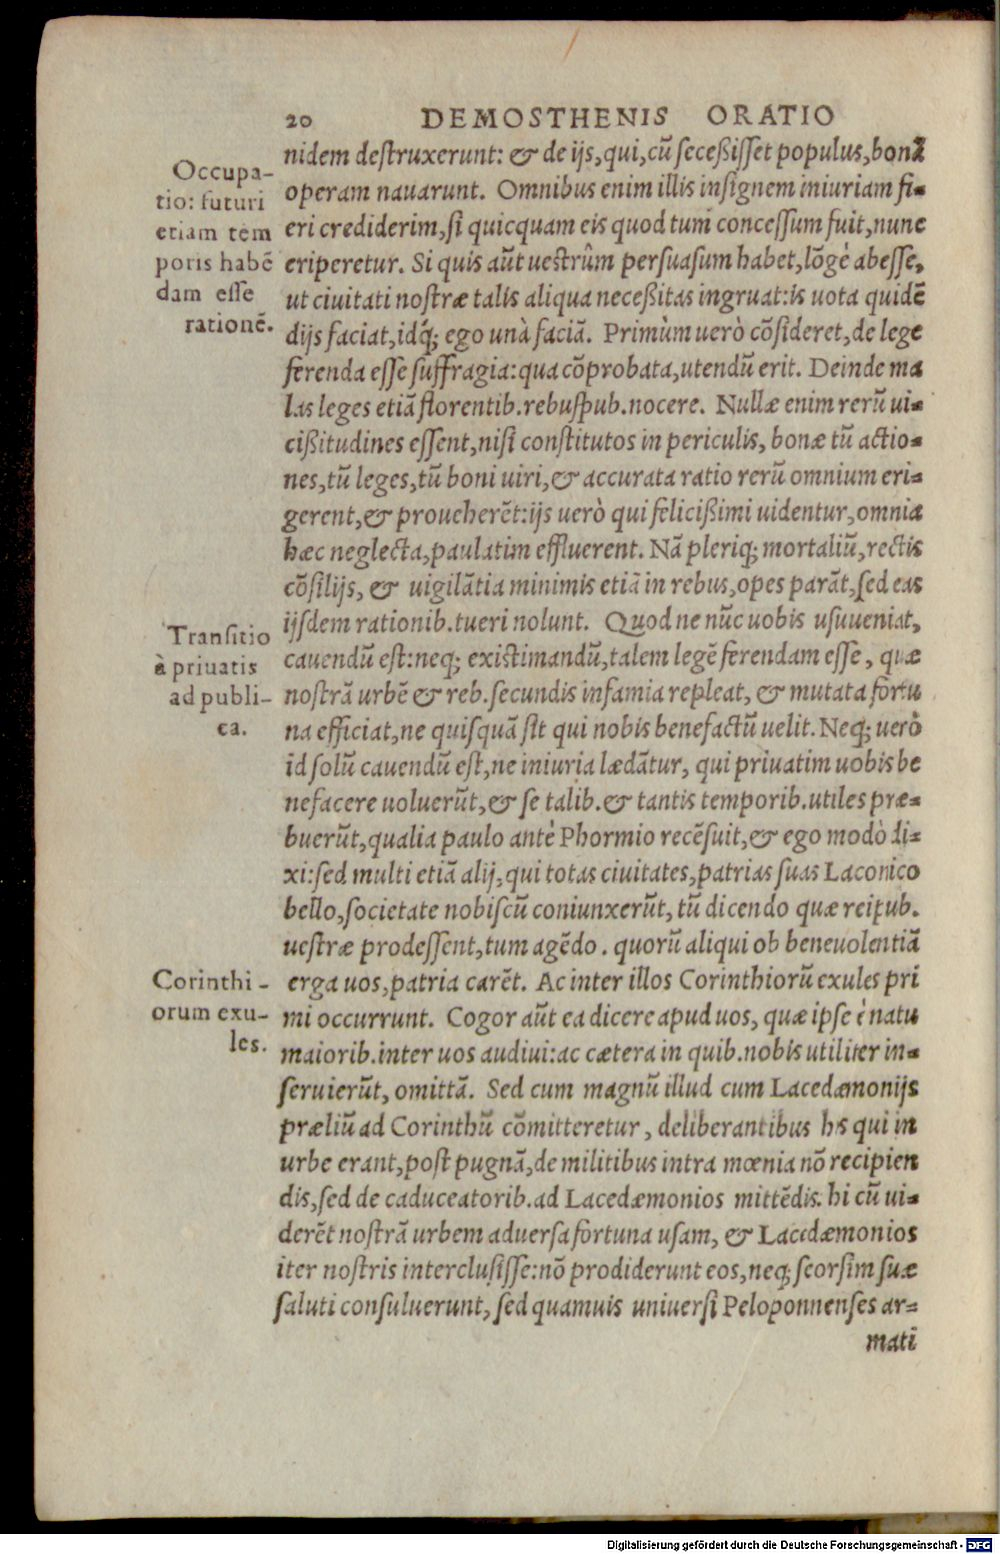 20 DEMOSTHENIS ORATIO
nidem destruxerunt: & de ijs, qui, cū seceßisset populus, bonā
operam nauarunt. Omnibus enim illis insignem iniuriam fi-
eri crediderim, si quicquam eis quod tum concessum fuit, nunc
eriperetur. Si quis aūt uestrûm persuasum habet, lōgè abesse,
ut ciuitati nostræ talis aliqua neceßitas ingruat: is uota quidē
dijs faciat, idq́; ego unà faciā. Primùm uerò cōsideret, de lege
ferenda esse suffragia: qua cōprobata, utendū erit. Deinde ma
las leges etiā florentib. rebuspub. nocere. Nullæ enim rerū ui-
cißitudines essent, nisi constitutos in periculis, bonæ tū actio-
nes, tū leges, tū boni uiri, & accurata ratio rerū omnium eri-
gerent, & proueherēt: ijs uerò qui felicißimi uidentur, omnia
hæc neglecta, paulatim effluerent. Nā pleriq; mortaliū, rectis
cōsilijs, & uigilātia minimis etiā in rebus, opes parāt, sed eas
ijsdem rationib. tueri nolunt. Quod ne nūc uobis usuueniat,
cauendū est: neq; existimandū, talem legē ferendam esse, quæ
nostrā urbē & reb. secundis infamia repleat, & mutata fortu
na efficiat, ne quisquā sit qui nobis benefactū uelit. Neq; uerò
id solū cauendū est, ne iniuria lædātur, qui priuatim uobis be
nefacere uoluerūt, & se talib. & tantis temporib. utiles præ-
buerūt, qualia paulo antè Phormio recēsuit, & ego modò di-
xi: sed multi etiā alij, qui totas ciuitates, patrias suas Laconico
bello, societate nobiscū coniunxerūt, tū dicendo quæ reipub.
uestræ prodessent, tum agēdo. quorū aliqui ob beneuolentiā
erga uos, patria carēt. Ac inter illos Corinthiorū exules pri
mi occurrunt. Cogor aūt ea dicere apud uos, quæ ipse è natu
maiorib. inter uos audiui: ac cætera in quib. nobis utiliter in-
seruierūt, omittā. Sed cum magnū illud cum Lacedæmonijs
præliū ad Corinthū cōmitteretur, deliberantibus his qui in
urbe erant, post pugnā, de militibus intra mœnia nō recipien
dis, sed de caduceatorib. ad Lacedæmonios mittēdis. hi cū ui-
derēt nostrā urbem aduersa fortuna usam, & Lacedæmonios
iter nostris interclusisse: nō prodiderunt eos, neq; seorsim suæ
saluti consuluerunt, sed quamuis uniuersi Peloponnenses ar-
mati
Occupa-
tio: futuri
etiam tem
poris habē
dam esse
rationē.
Transitio
à priuatis
ad publi-
ca.
Corinthi-
orum exu-
les.
Digitalisierung gefördert durch die Deutsche Forschungsgemeinschaft - DFG